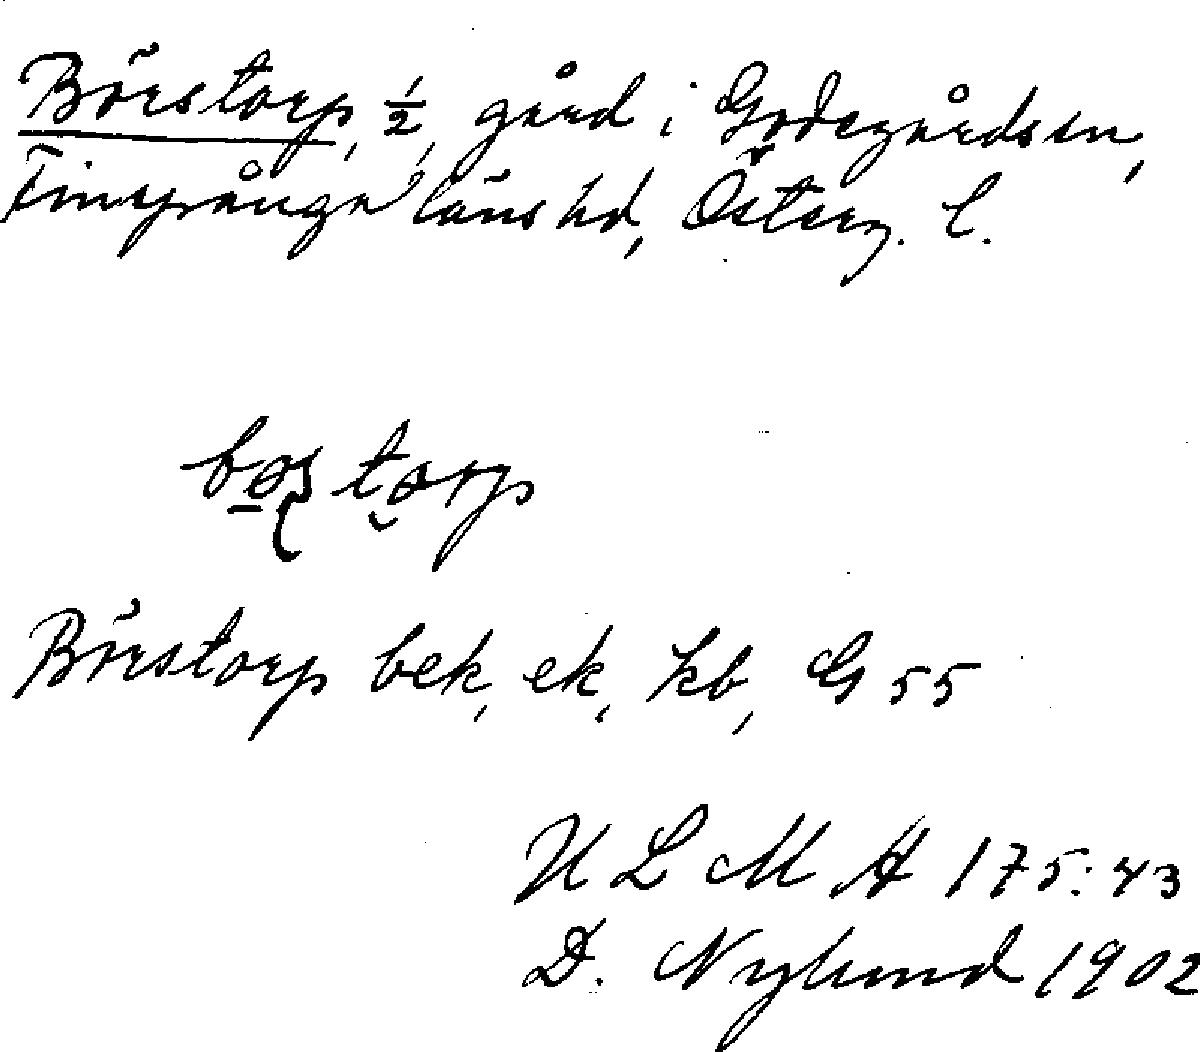 Börstorp, 1/2, gård i Godegårds sn,
Finspånga läns hd, Österg. l.
Börstorp bek, ek, kb, G 55
ULMA 175:43
D. Nylund 1902